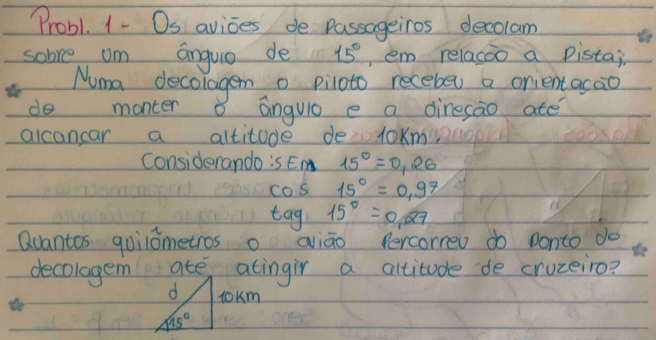 Probl. 1- Os aviões de passageiros decolam
sobre um ângulo de 15°, em relação a pista;
Numa decolagem o piloto recebeu a orientação
de manter o ângulo e a direção até
alcançar a altitude de 10km.
Considerando: sEm 15° = 0,26
cos 15° = 0,97
tag 15° = 0,27
Quantos quilômetros o avião percorreu do ponto de
decolagem até atingir a altitude de cruzeiro?
d 10km
15°